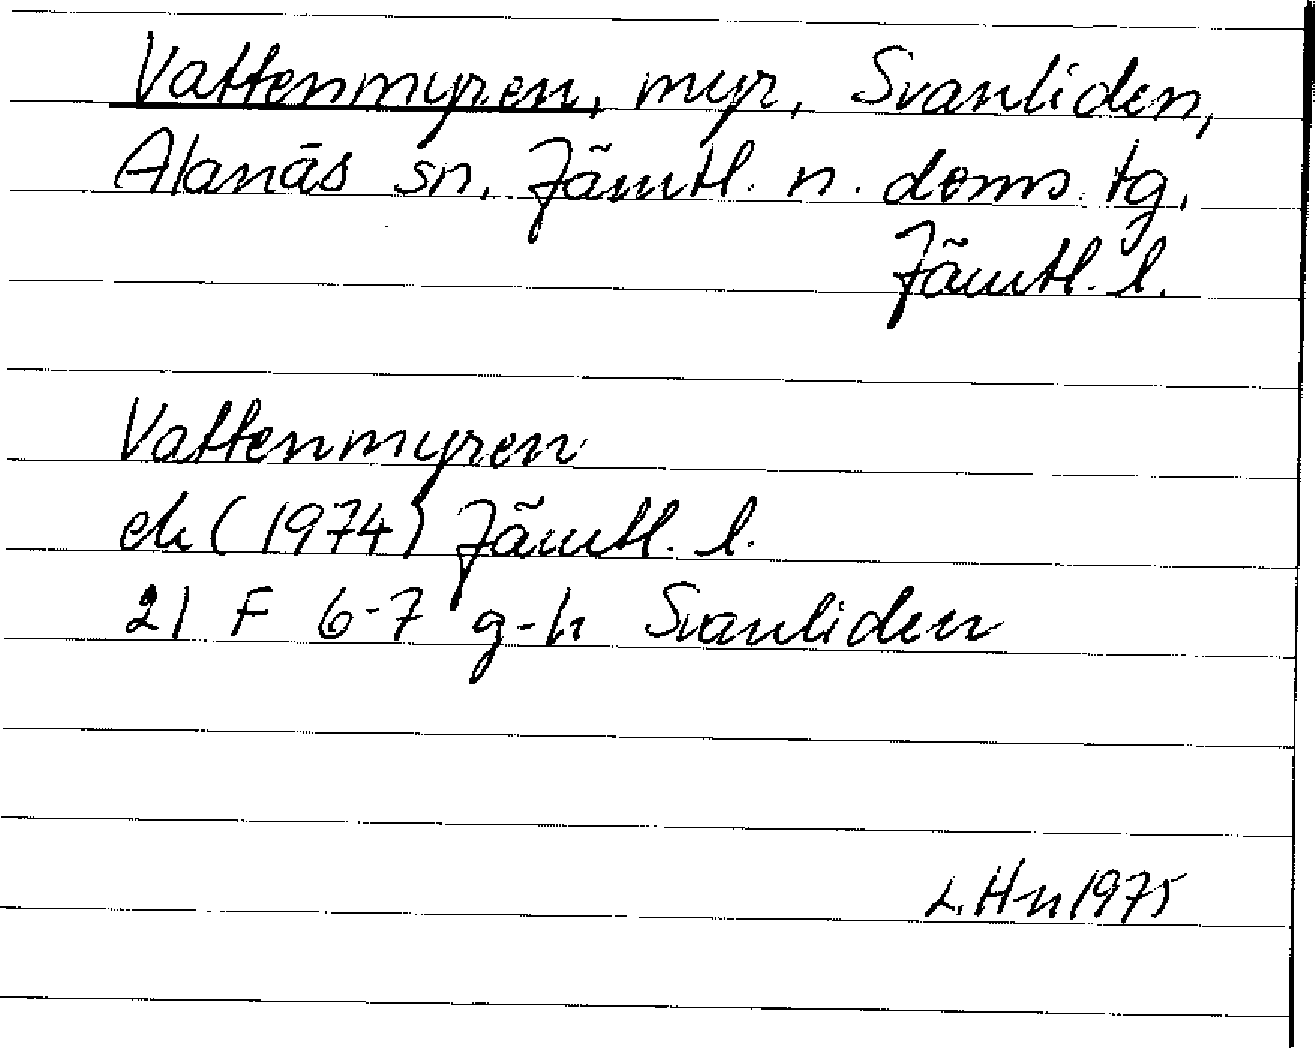 Vattenmyren, myr, Svanliden,
Alanäs sn, Jämtl. n. doms. tg,
Jämtl. l.
Vattenmyren
ek (1974) Jämtl. l.
21 F 6-7 g-h Svanliden
L. H-n 1975